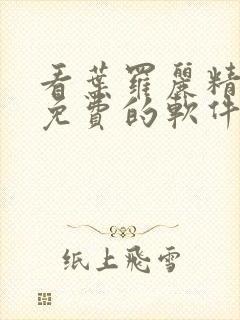 看葉羅麗精
免費的軟件
纸上飛雪